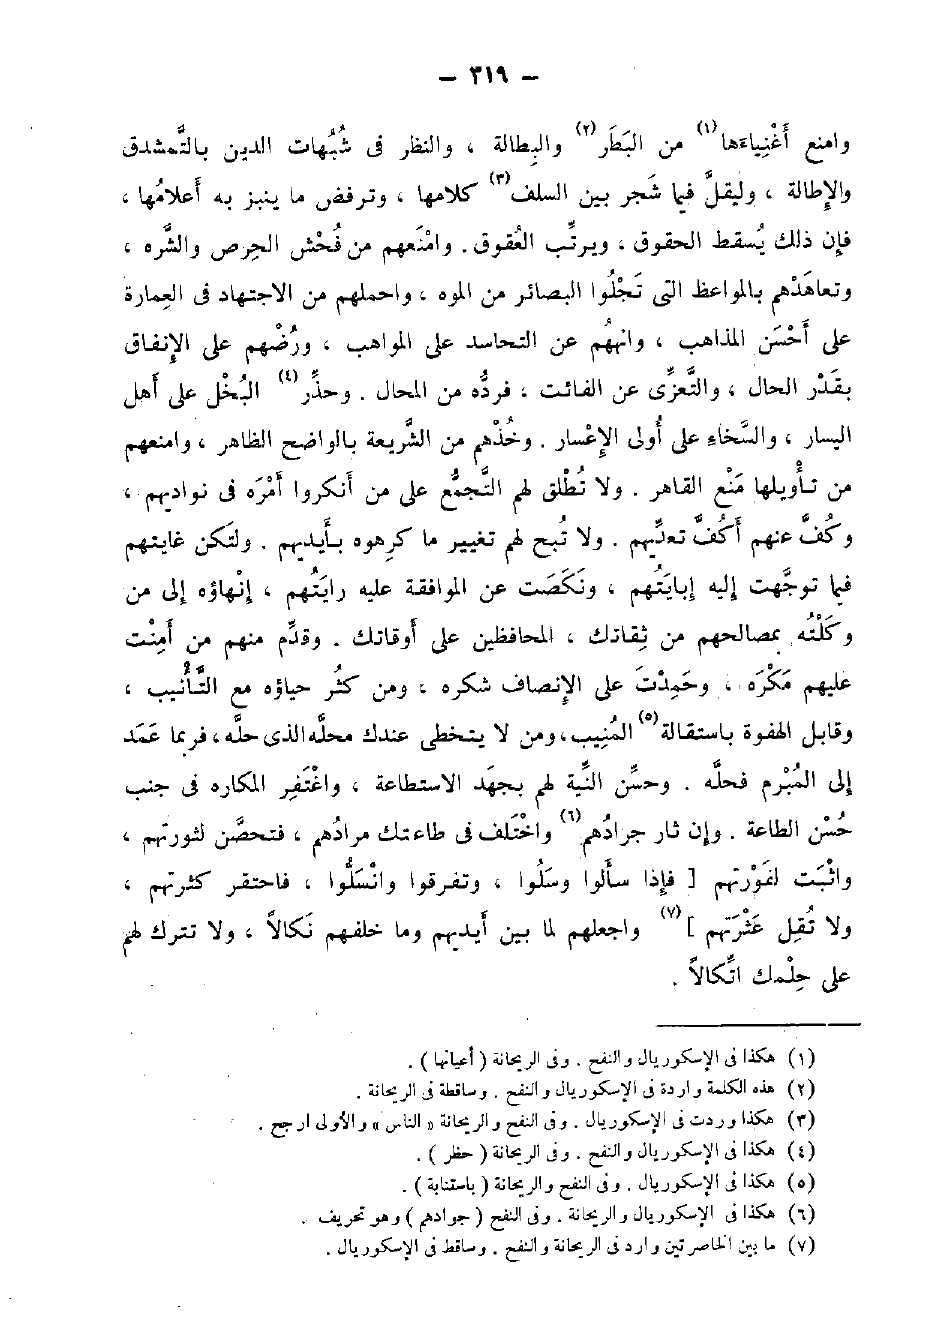 — ٣١٩ —
وامنع أَغْنِياءَها(١) من البَطَر(٢) والبِطالة ، والنظر فى شُبُهات الدين بالتَّمشدق
والإطالة ، وليقلَّ فيما شَجر بين السلف(٣) كلامها ، وترفض ما ينبز به أَعلامُها ،
فإن ذلك يُسقط الحقوق ، ويرتِّب العُقوق . وامْنَعهم من فُحْش الحِرص والشَّره ،
وتعاهَدْهم بالمواعظ التى تَجْلُوا البصائر من الموه ، واحملهم من الاجتهاد فى العِمارة
على أَحْسَن المذاهب ، وانههُم عن التحاسد على المواهب ، ورُضْهم على الإنفاق
بقَدْر الحال ، والتَّعزِّى عن الفائت ، فردُّه من المحال . وحذِّر(٤) البُخْل على أهل
اليسار ، والسَّخاءِ على أُولى الإعْسار . وخُذْهم من الشَّريعة بالواضح الظاهر ، وامنعهم
من تأْويلها مَنْع القاهر . ولا تُطْلق لهم التَّجمُّع على من أَنكروا أَمْرَه فى نواديهم ،
وكُفَّ عنهم أَكُفَّ تعدِّيهم . ولا تُبح لهم تغيير ما كرهوه بأَيديهم . ولتَكن غايتهم
فيما توجَّهت إليه إبايَتُهم ، ونَكَصَت عن الموافقة عليه رايَتُهم ، إنْهاؤه إلى من
وكَلْتُه بمصالحهم من ثِقاتك ، المحافظين على أَوقاتك . وقدِّم منهم من أَمِنْت
عليهم مَكْرَه ، وحَمِدْتَ على الإنصاف شكره ، ومن كثُر حياؤه مع التَّأْنيب ،
وقابل الهفوة باستقالة(٥) المُنِيب، ومن لا يتخطى عندك محلَّه الذى حلَّه، فربما عَمَد
إلى المُبْرم فحلَّه . وحسِّن النِّية لهم بجهَد الاستطاعة ، واغْتَفِر المكاره فى جنب
حُسْن الطاعة . وإن ثار جرادُهم(٦) واخْتَلف فى طاعتك مرادُهم ، فتحصَّن لثورتهم ،
واثْبَت لفَوْرتهم [ فإذا سأَلوا وسَلُوا ، وتفرقوا وانْسَلُّوا ، فاحتقر كثرتهم ،
ولا تُقِل عَثْرَتهم ](٧) واجعلهم لما بين أَيديهم وما خلفهم نَكالاً ، ولا تترك لهم
على حِلْمك اتِّكالاً .
(١) هكذا فى الإسكوريال والنفح . وفى الريحانة ( أعيانها ) .
(٢) هذه الكلمة واردة فى الإسكوريال والنفح . وساقطة فى الريحانة .
(٣) هكذا وردت فى الإسكوريال . وفى النفح والريحانة « الناس » والأولى ارجح .
(٤) هكذا فى الإسكوريال والنفح . وفى الريحانة ( حظر ) .
(٥) هكذا فى الإسكوريال . وفى النفح والريحانة ( باستنابة ) .
(٦) هكذا فى الإسكوريال والريحانة . وفى النفح ( جوادهم ) وهو تحريف .
(٧) ما بين الخاصرتين وارد فى الريحانة والنفح . وساقط فى الإسكوريال .